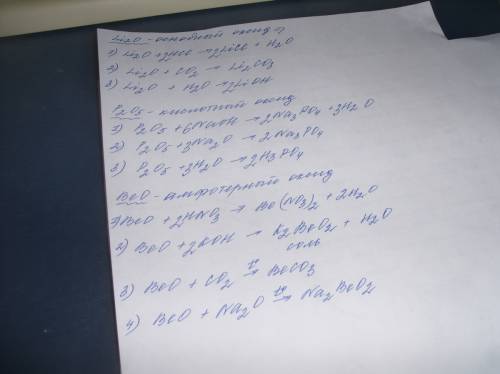 Li2O - основный оксид
1) Li2O + 2HCl → 2LiCl + H2O
2) Li2O + CO2 → Li2CO3
3) Li2O + H2O → 2LiOH
P2O5 - кислотный оксид
1) P2O5 + 6NaOH → 2Na3PO4 + 3H2O
2) P2O5 + 3Na2O → 2Na3PO4
3) P2O5 + 3H2O → 2H3PO4
BeO - амфотерный оксид
1) BeO + 2HNO3 → Be(NO3)2 + 2H2O
2) BeO + 2KOH → K2BeO2 + H2O
соль
3) BeO + CO2 → BeCO3
4) BeO + Na2O → Na2BeO2